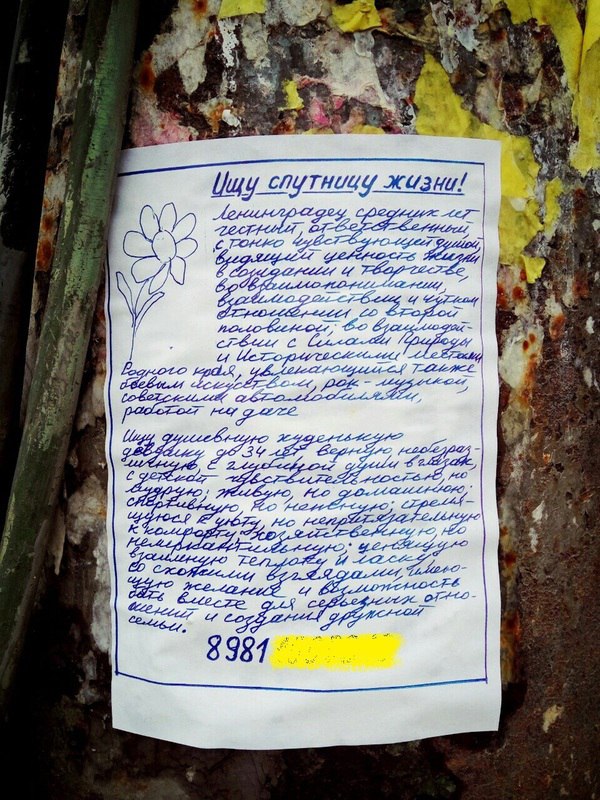 Ищу спутницу жизни!
Ленинградец средних лет
честный, ответственный,
с тонко чувствующей душой,
видящий ценность жизни
в созидании и творчестве,
во взаимопонимании,
взаимодействии и чутком
отношении со второй
половиной, во взаимодей-
ствии с Силами Природы
и Историческими Местами
Родного края, увлекающийся также
боевым искусством, рок-музыкой,
советскими автомобилями,
работой на даче
Ищу душевную худенькую
девушку до 34 лет, верную, небезраз-
личную, с глубиной души в глазах,
с детской чувствительностью, но
мудрую; живую, но домашнюю;
спортивную, но нежную; стремя-
щуюся к уюту, но непритязательную
к комфорту; хозяйственную, но
немеркантильную; ценящую
взаимную теплоту и ласку,
со схожими взглядами, имею-
щую желание и возможность
быть вместе для серьезных отно-
шений и создания дружной
семьи.
8981